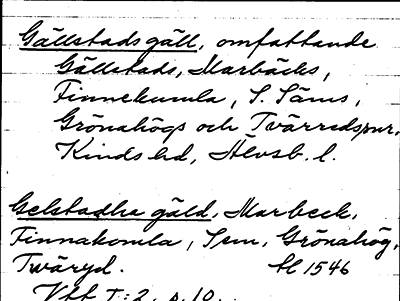 Gällstads gäll, omfattande
Gällstads, Marbäcks,
Finnekumla, S. Säms,
Grönahögs och Tvärredspnr,
Kinds hd, Älvsb. l.
Gelstadhe gäld, Marbeck,
Finnakomla, Sem, Grönahög,
Twäryd. 1546
Vbb I:2, p. 10.